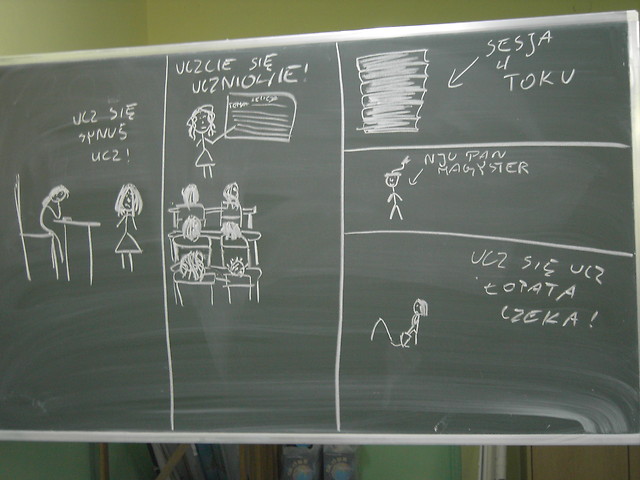 UCZ SIĘ
SYNUŚ
UCZ!
UCZCIE SIĘ
UCZNIOWIE!
SESJA
W
TOKU
NJU PAN
MAGYSTER
UCZ SIĘ UCZ
ŁOPATA
CZEKA!